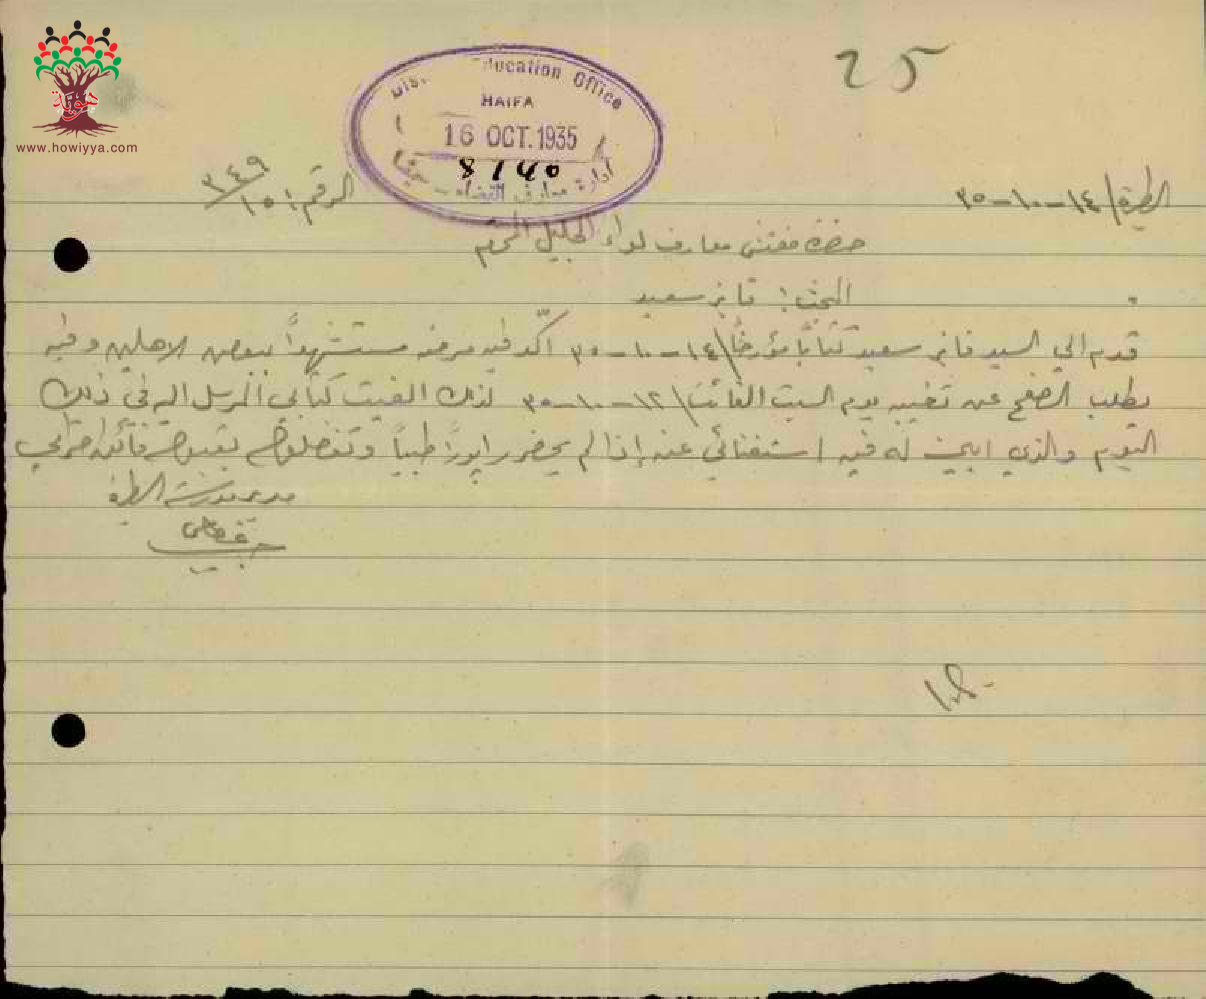 25
هوية
www.howiyya.com
District Education Office
HAIFA
16 OCT. 1935
ادارة معارف القضاء - حيفا
الطيرة/ ١٤-١٠-٣٥
الرقم: ٣٤٩/١٥
حضرة مفتش معارف لواء الجليل المحترم
البحث: فايز سعيد
قدم الي السيد فايز سعيد كتاباً مؤرخاً/ ١٤-١٠-٣٥ أكد فيه مرضه مستشهداً ببعض الاهلين وفيه
يطلب الصفح عن تغيبه يوم السبت الفائت/ ١٢-١٠-٣٥ لذلك الغيت كتابي المرسل اليه في ذلك
اليوم والذي ابحث له فيه استغنائي عنه إذا لم يحضر رابوراً طبياً وتفضلوا بقبول فائق احترامي
مدير مدرسة الطيرة